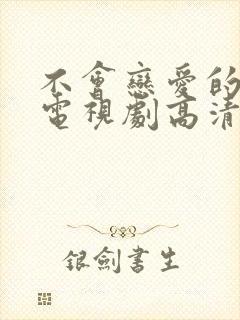 不會戀愛的
電視劇高清
银劍書生